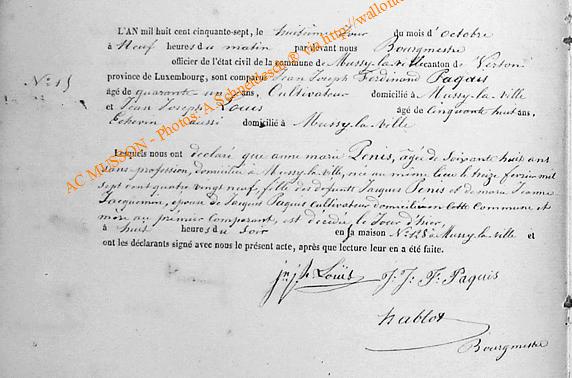 L'AN mil huit cent cinquante-sept, le huitième jour du mois d'octobre
à Neuf heures du matin par devant nous Bourgmestre
officier de l'état civil de la commune de Mussy-la-ville canton de Virton
N° 15 province de Luxembourg, sont comparus Jean Joseph Ferdinand Paquis
âgé de quarante un ans, Cultivateur domicilié à Mussy-la-Ville
et Jean Joseph Louis âgé de cinquante huit ans,
Echevin aussi domicilié à Mussy-la-Ville
Lesquels nous ont déclaré que anne marie Penis, âgée de soixante huit ans
sans profession, domiciliée à Mussy-la-Ville, née au même lieu le treize février mil
sept cent quatre vingt neuf, fille des défunts Jacques Penis et de marie Jeanne
Jacquemin, épouse de Jacques Paquis Cultivateur domicilié en Cette Commune et
mère au premier Comparant, est décédée le Jour d'hier,
à huit heures du soir en sa maison N° 128 à Mussy-la-ville et
ont les déclarants signé avec nous le présent acte, après que lecture leur en a été faite.
Louis J. J. F. Paquis
hablot
Bourgmestre
AC MUSSON - Photos: A Schneider via http://wallo